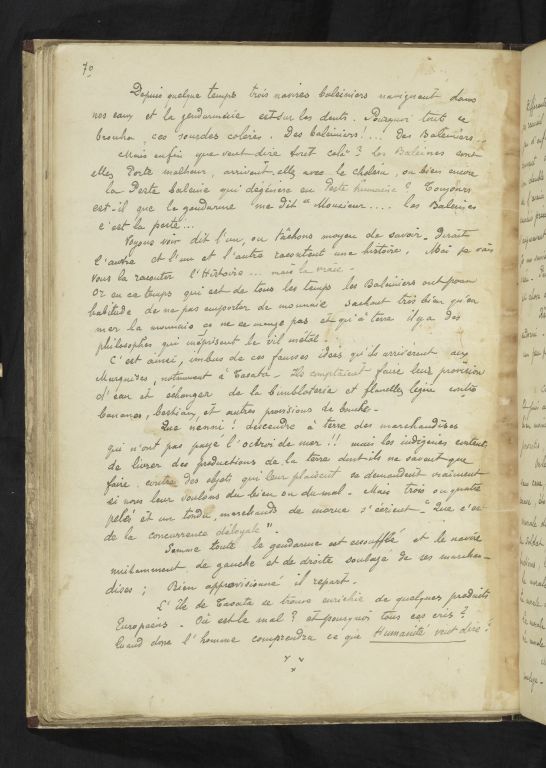 70
Depuis quelque temps trois navires baleiniers naviguent dans
nos eaux et la gendarmerie est sur les dents. Pourquoi tout ce
brouha, ces sourdes colères. Des baleiniers!... Des Baleiniers
Mais enfin que veut dire tout cela"? les Baleines sont
elles Porte malheur, arrivent elles avec le choléra, ou bien encore
la Perte baleine qui dégénère en Peste humaine? Toujours
est-il que le gendarme me dit "Monsieur.... les Baleines
c'est la peste...
Voyons voir dit l'un, ou tâchons moyen de savoir - dirait
l'autre et l'un et l'autre racontent une histoire. Moi je vais
vous la raconter l'Histoire... mais la vraie -
Or en ce temps qui est de tous les temps les Baleiniers ont pour
habitude de ne pas emporter de monnaie sachant très bien qu'en
mer la monnaie ça ne se mange pas et qu'à terre il y a des
philosophes qui méprisent le vil métal.
C'est ainsi, imbus de ces fausses idées qu'ils arrivèrent aux
Marquises, notamment à Taoata - Ils comptaient faire leur provision
d'eau et échanger de la bimbloterie et flanelles légère contre
bananes, bestiaux et autres provisions de bouche -
Que nenni! descendre à terre des marchandises
qui n'ont pas payé l'octroi de mer!! mais les indigènes contents
de livrer des productions de la terre dont ils ne savent que
faire contre des objets qui leur plaisent se demandent vraiment
si nous leur voulons du bien ou du mal - Mais trois ou quatre
pelés et un tondu, marchands de morue s'écrient - "Que c'est
de la concurrence déloyale".
Somme toute le gendarme est essoufflé et le navire
nuitamment de gauche et de droite soulagé de ses marchan-
dises; Bien approvisionné il repart.
L'île de Taoata se trouve enrichie de quelques produits
Européens - Où est le mal? et pourquoi tous ces cris?
Quand donc l'homme comprendra ce que Humanité veut dire?